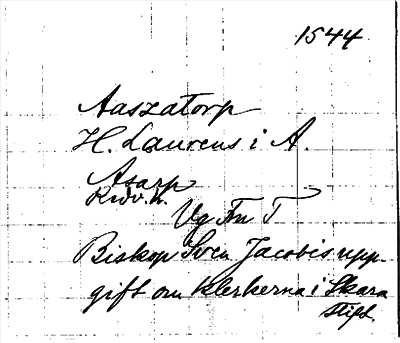 1544
Aaszatorp
H. Laurens i A.
Asarp
Kdv. h.
Vg Fn T
Biskop Sven Jacobis upp-
gift om klerkerna i Skara
stift.